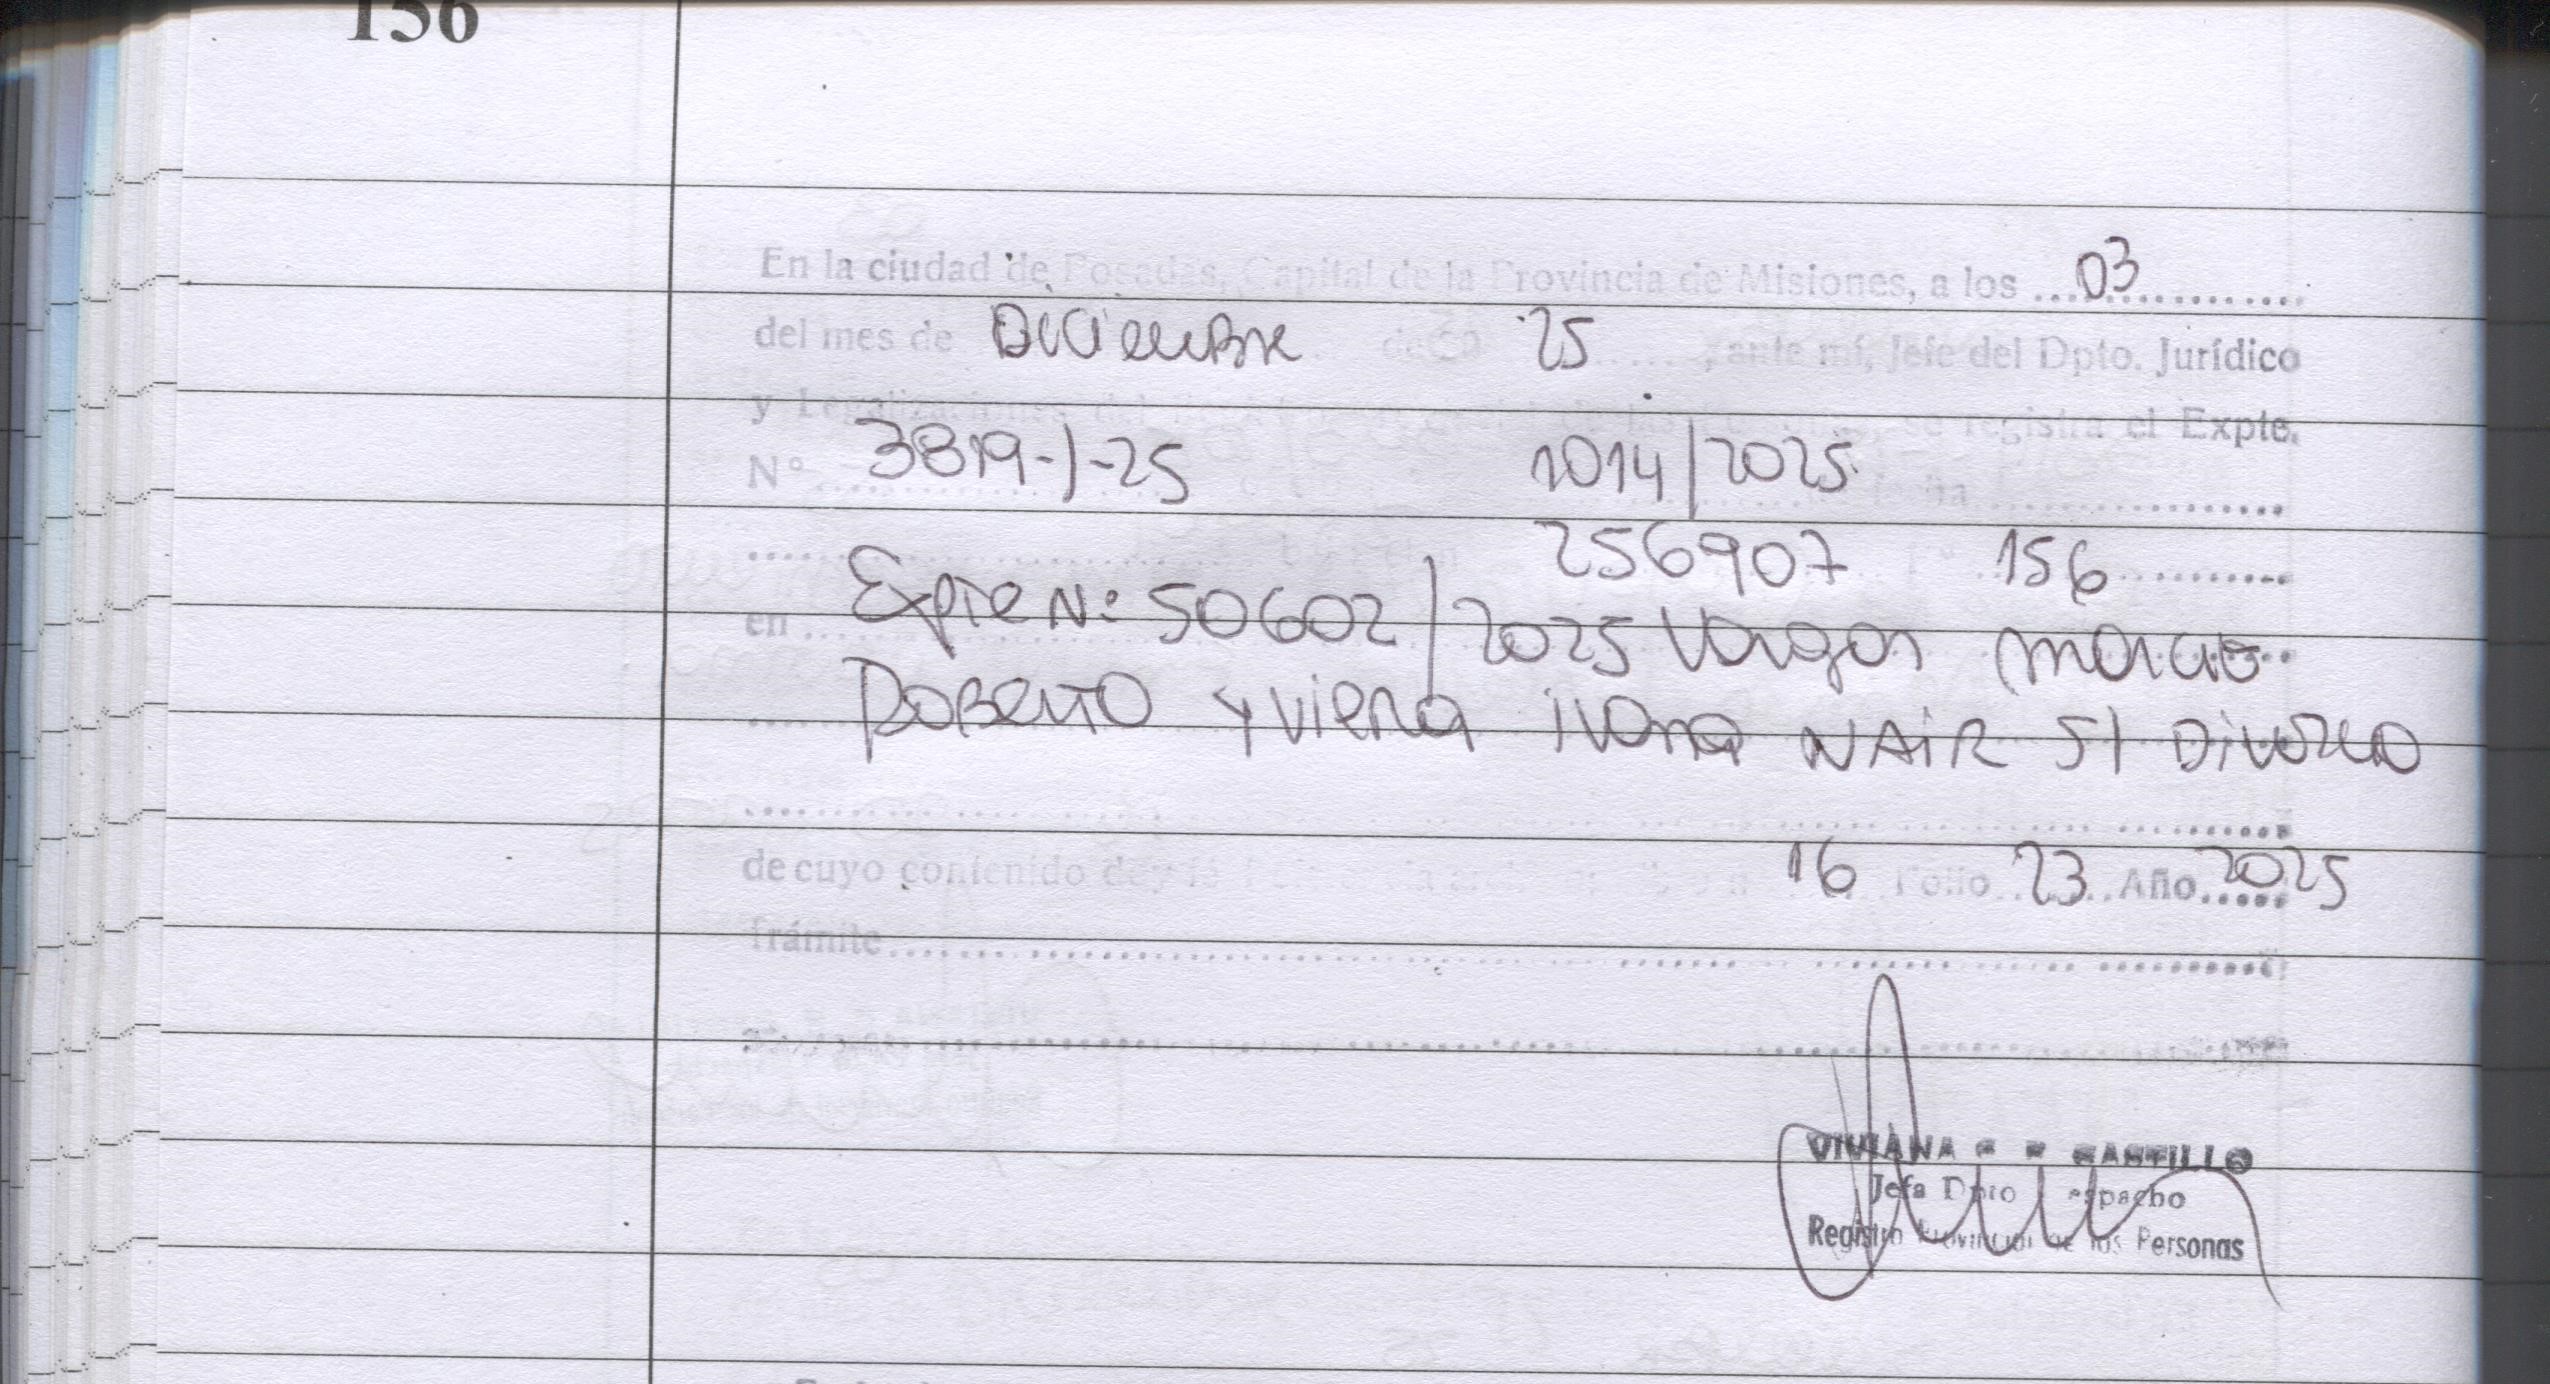 156
En la ciudad de Posadas, Capital de la Provincia de Misiones, a los 03
del mes de Diciembre de 25, ante mí, Jefe del Dpto. Jurídico
y Legalizaciones se registra el Expte.
N° 3819-J-25 1014/2025
256907 156
en Expte N: 50602/2025 Vargas Marcio
Roberto y Viera Ivana NAIR S/ Divorcio
de cuyo contenido doy fe 16 Folio 23 Año 2025
Trámite
VIVIANA CASTILLO
Jefa Dpto Despacho
Registro Provincial de las Personas